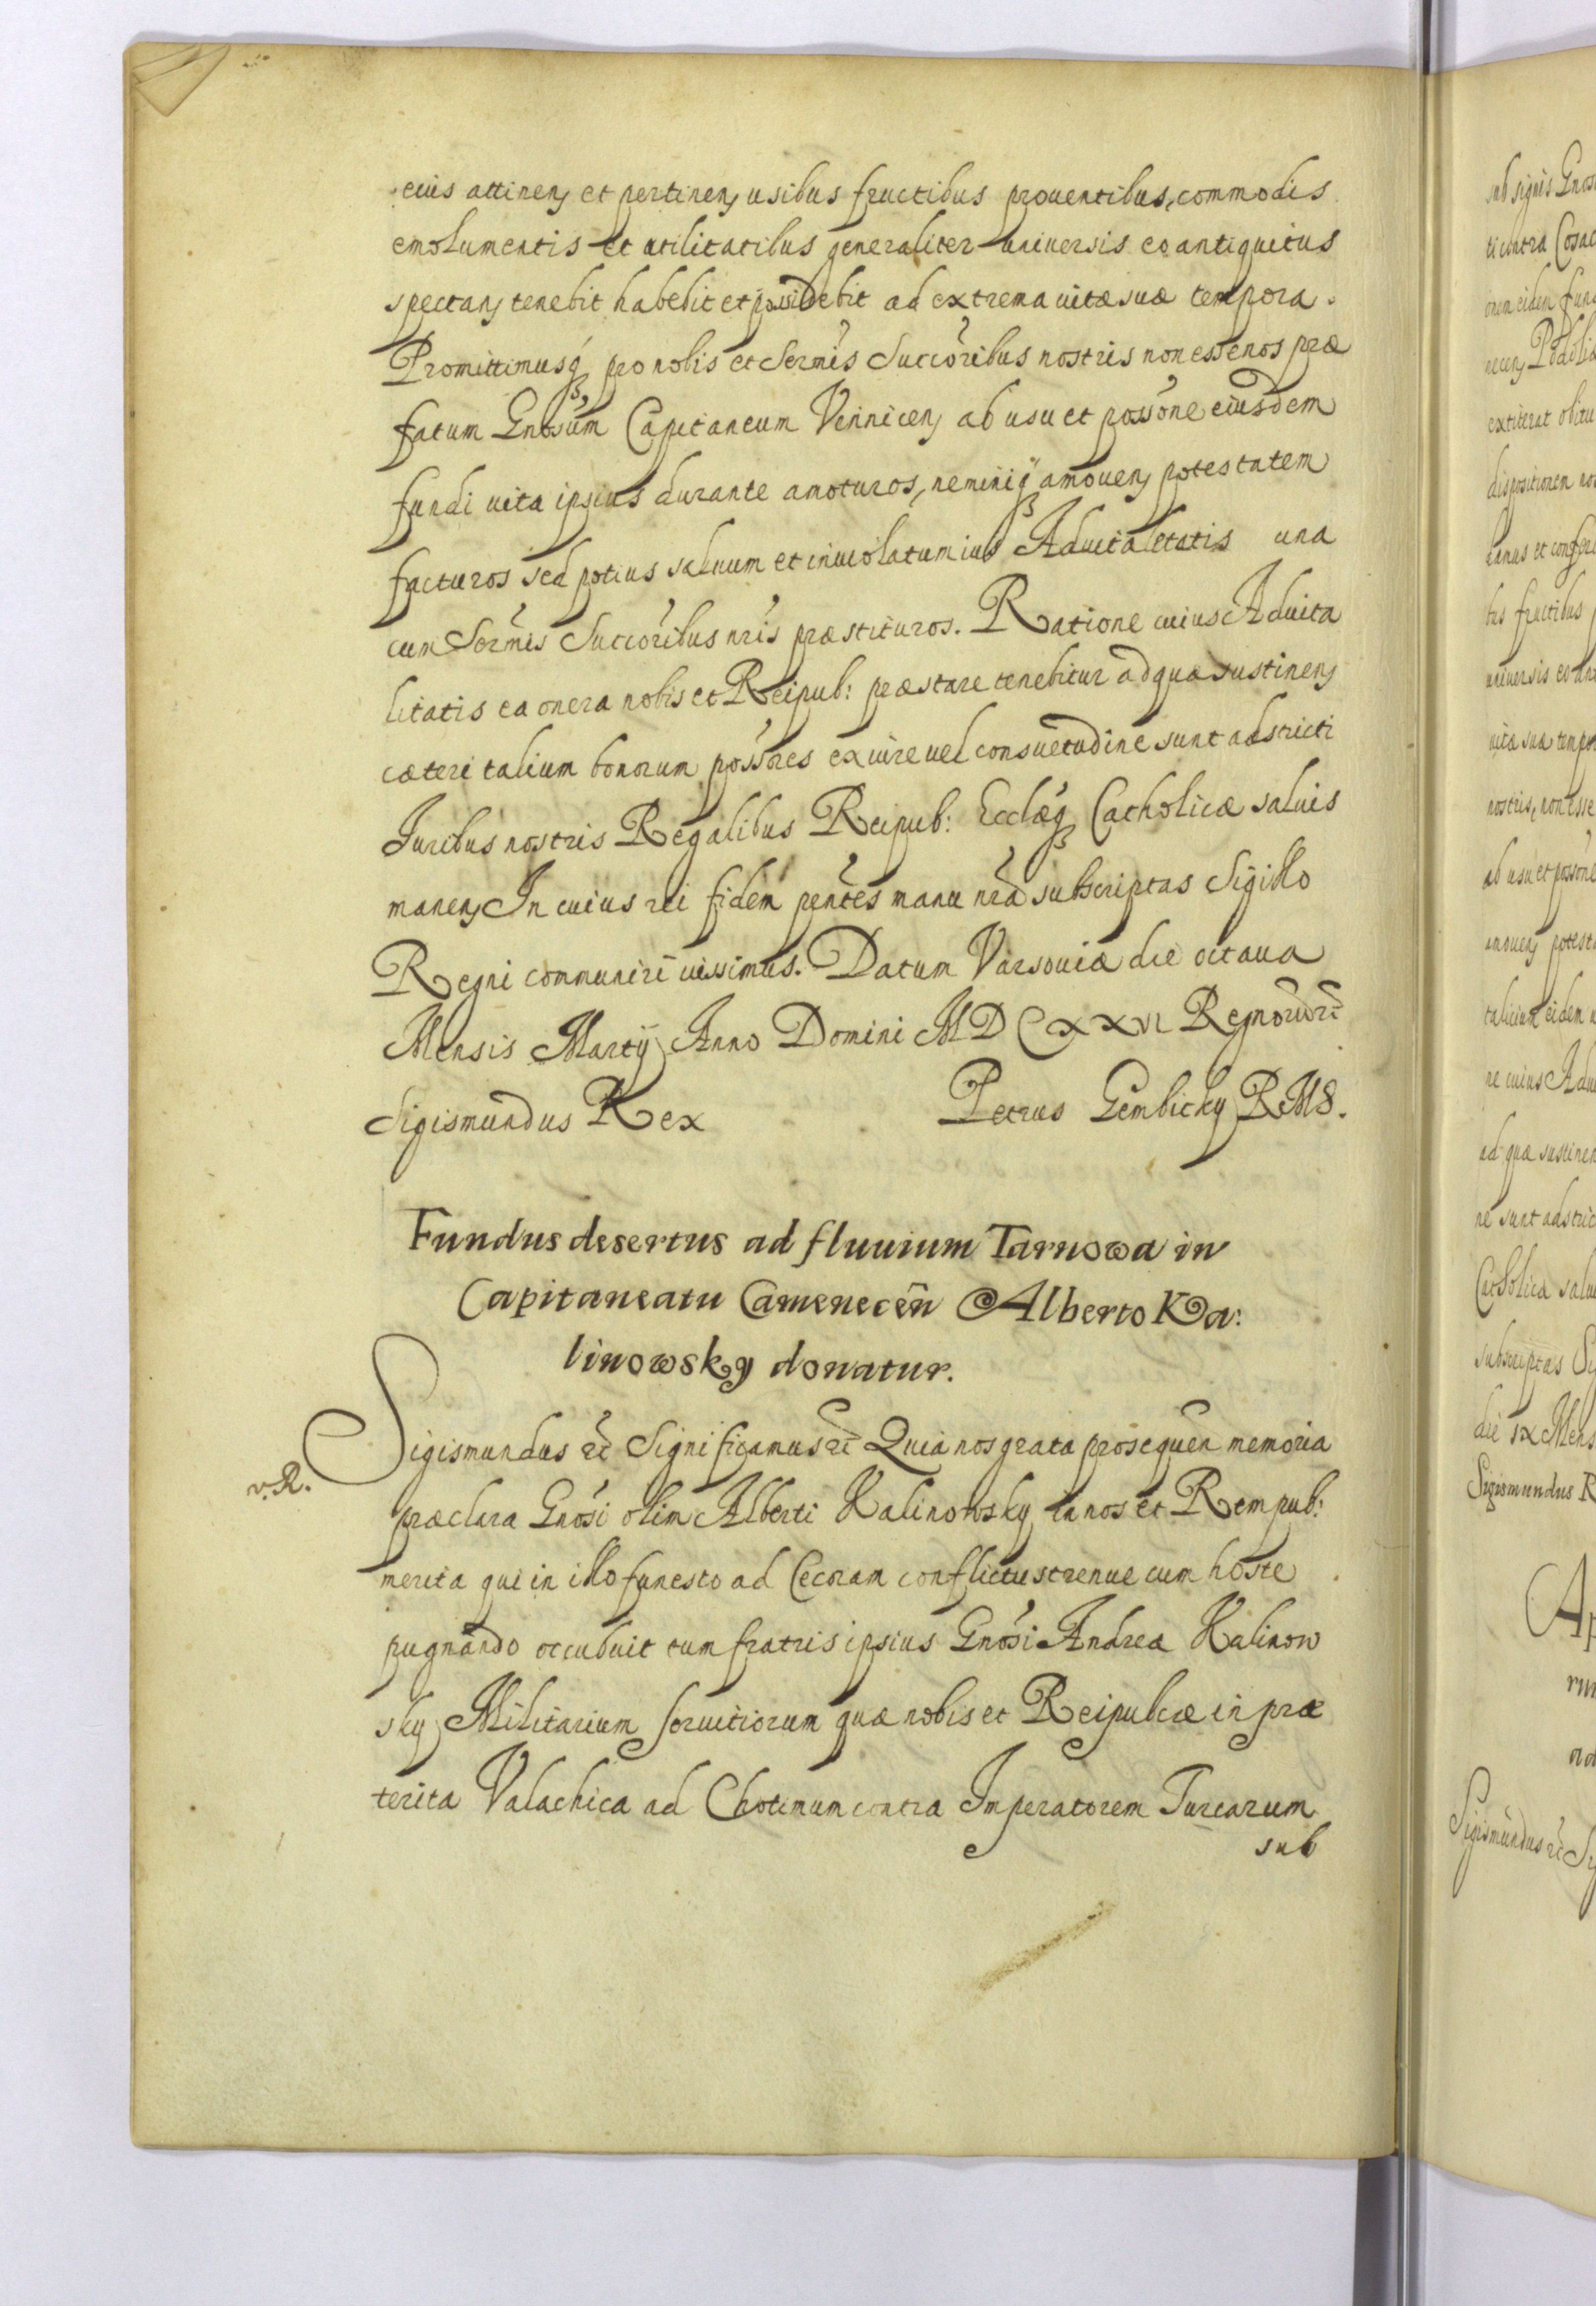 eius attinen et pertinen usibus fructibus prouentibus, commodis
emolumentis et utilitatibus generaliter uniuersis eo antiquitus
spectan tenebit habebit et possidebit ad extrema uitæ suæ tempora.
Promittimusq pro nobis et Sermis Succoribus nostris non esse nos præ
fatum Gnosum Capitaneum Vennicen ab usu et possone eiusdem
fundi uita ipsius durante amoturos, neminiq amouen potestatem
facturos sed potius saluum et inuiolatum ius Aduitalitatis una
cum Sermis Succoribus nris præstituros. Ratione cuius Aduita
litatis ea onera nobis et Reipub: præstare tenebitur ad quæ sustinen
cæteri talium bonorum possores ex iure uel consuetudine sunt adstricti
Iuribus nostris Regalibus Reipub: Ecclæq Catholicæ saluis
manen In cuius rei fidem pentes manu nra subscriptas Sigillo
Regni communiri iussimus. Datum Varsouiæ die octaua
Mensis Martij Anno Domini MDCXXVI Regnorū
Sigismundus Rex Petrus Gembicky RMS.
Fundus desertus ad fluuium Tarnowa in
Capitaneatu Camenecēn Alberto Ka:
linowsky donatur.
Sigismundus etc Significamus etc Quia nos grata prosequēn memoria
v. R.
præclara Gnosi olim Alberti Kalinowsky in nos et Rempub:
merita qui in illo funesto ad Cecoram conflictu strenue cum hoste
pugnando occubuit tum fratris ipsius Gnosi Andreæ Kalinow
sky Militarium seruitiorum quæ nobis et Reipublicæ in præ
terita Valachica ad Chotimum contra Imperatorem Turcarum
sub